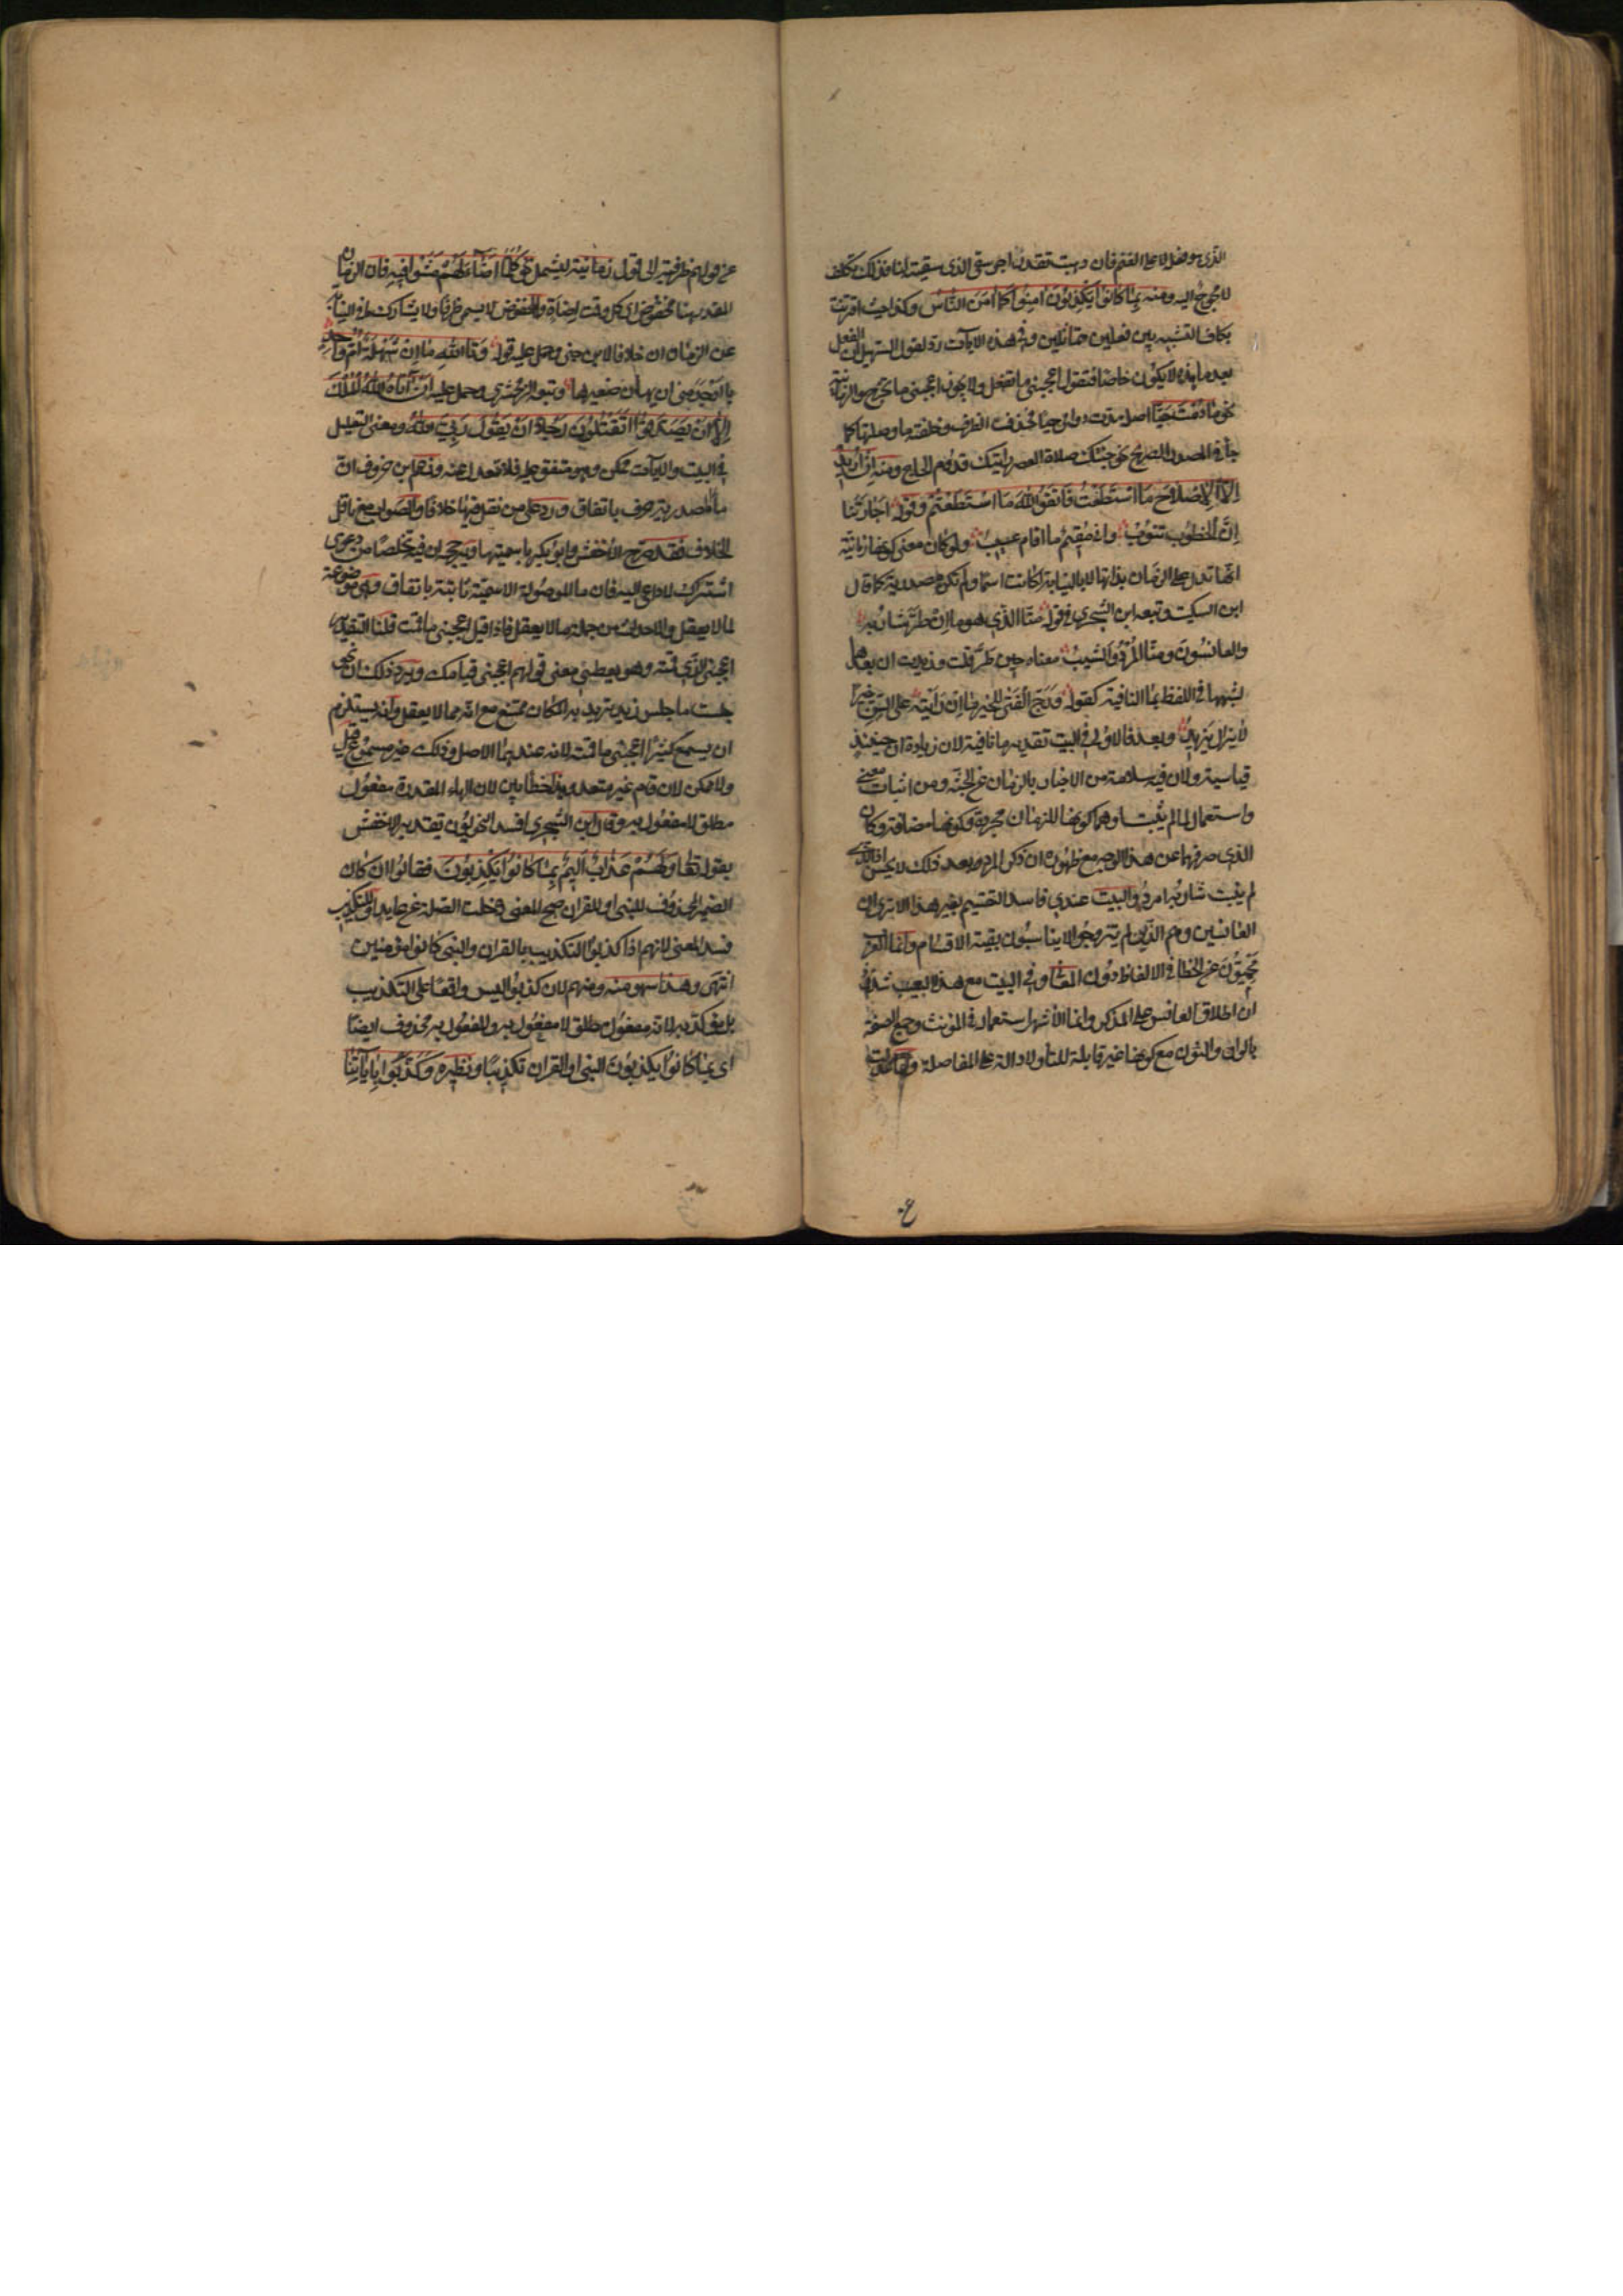 الذى هو فضل لا على الغنم فان ذهبت تقدر اجر سقى الذى سقيته لنا فذلك تكلف
لا محوج اليه ومنه بما كانوا يكذبون امنوا كما امن الناس وكذا حيث اقترنت
بكاف التشبيه بين فعلين متماثلين وفى هذه الايات رد لقول السهيلى ان الفعل
بعد ما هذه لا يكون خاصا فتقول اعجبنى ما تفعل ولا يجوز اعجبنى ما تخرج والزمانية
نحو ما دمت حيا اصله مدة دوامى حيا فحذف الظرف وخلفته ما وصلتها كما
جاء فى المصدر الصريح نحو جئتك صلاة العصر واتيك قدوم الحاج ومنه ان اريد
الا الاصلاح ما استطعت فاتقوا الله ما استطعتم وقوله اجارتنا
ان الخطوب تنوب وانى مقيم ما اقام عسيب ولو كان معنى كونها زمانية
انها تدل على الزمان بذاتها لا بالنيابة لكانت اسما ولم تكن مصدرية كما قال
ابن السكيت وتبعه ابن الشجرى فى قوله منا الذى هو ما ان طر شاربه
والعانسون ومنا المرد والشيب معناه حين طر قلت وزيدت ان بعدها
لشبهها فى اللفظ بما النافية كقوله ورج الفتى للخير ما ان رايته على السن خيرا
لا يزال يزيد وبعد فالاولى فى البيت تقدير ما نافية لان زيادة ان حينئذ
قياسية ولان فيه سلامة من الاخبار بالزمان عن الجثة ومن اثبات معنى
واستعمال لما لم يثبتا وهما كونها للزمان مجردة وكونها مضافة وكان
الذى صرفهما عن هذا الوجه مع ظهوره ان ذكر المرد بعد ذلك لا يحسن اذ الذى
لم ينبت شاربه امرد والبيت عندى فاسد التقسيم بغير هذا الا ترى ان
العانسين وهم الذين لم يتزوجوا لا يناسبون بقية الاقسام وانما العرب
محميون عن الخطا فى الالفاظ دون المعانى وفى البيت مع هذا العيب شذوذ
ان اطلاق العانس على المذكر وانما الاشهر استعماله فى المؤنث وجمع الصفة
بالواو والنون مع كونها غير قابلة للتاء ولا دالة على المفاضلة
عن قولهم ظرفية الى قول زمانية ليشمل نحو كلما اضاء لهم مشوا فيه فان الزمان
المقدر هنا مخفوض اى كل وقت اضاءة والمخفوض لا يسمى ظرفا ولا يشارك ما فى النيابة
عن الزمان ان خلافا لابن جنى وحمل عليه قوله وتالله ما ان شهلة ام واحد
باوجد منى ان يهان صغيرها وتبعه الزمخشرى وحمل عليه ان اتاه الله الملك
الا ان يصدقوا اتقتلون رجلا ان يقول ربى الله ومعنى التعليل
فى البيت والايات ممكن وهو متفق عليه فلا تعدل عنه وزعم ابن خروف ان
ما المصدرية حرف باتفاق ورد على من نقل فيها خلافا والصواب مع ناقل
الخلاف فقد صرح الاخفش وابو بكر باسميتها ويرجحه ان فيه تخلصا من دعوى
اشتراك لا داعى اليه فان ما الموصولة الاسمية ثابتة باتفاق وهى موضوعة
لما لا يعقل والاحداث من جملة ما لا يعقل فاذا قيل اعجبنى ما قمت قلنا التقدير
اعجبنى الذى قمته وهو يعطى معنى قولهم اعجبنى قيامك ويرد ذلك ان نحو
جلست ما جلس زيد تريد به المكان ممتنع مع انه مما لا يعقل وانه يستلزم
ان يسمع كثيرا اعجبنى ما قمته لانه عندهما الاصل وذلك غير مسموع قيل
ولا ممكن لان قام غير متعد وهذا خطا بين لان الهاء المقدرة مفعول
مطلق لا مفعول به وقال ابن الشجرى افسد النحويون تقدير الاخفش
بقوله تعالى ولهم عذاب اليم بما كانوا يكذبون فقالوا ان كان
الضمير المحذوف للنبى او للقران صح المعنى وخلت الصلة عن عايد او للتكذيب
فسد المعنى لانهم اذا كذبوا التكذيب بالقران والنبى كانوا مؤمنين
انتهى وهذا سهو منه ومنهم لان كذبوا ليس واقعا على التكذيب
بل مؤكد به لانه مفعول مطلق لا مفعول به والمفعول به محذوف ايضا
اى بما كانوا يكذبون النبى او القران تكذيبا ونظيره وكذبوا باياتنا